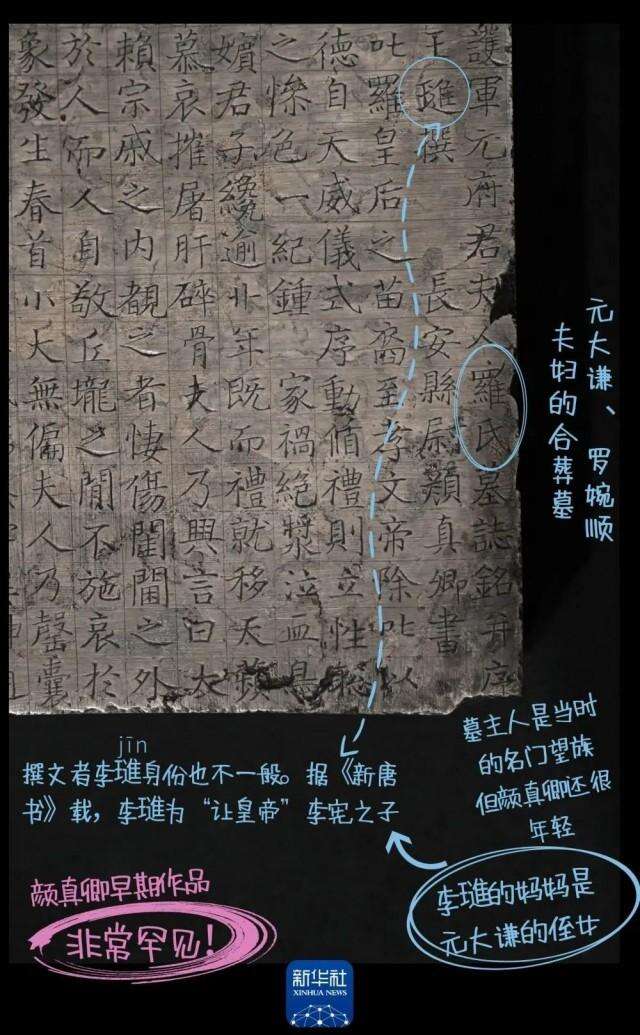 護軍元府君夫人羅氏墓誌銘并序
王璡撰 長安縣尉顏真卿書
叱羅皇后之苗裔至孝文帝除叱以
德自天威儀式序動循禮則立性聰
之慘色一紀鍾 家禍絕漿泣血
嬪君子纔逾廿年既而禮就移天蘋
慕哀摧屠肝碎骨夫人乃興言曰大
賴宗戚之内覩之者悽傷之外
於人而人自敬丘壠之間不施哀於
象發生春首小大無偏夫人乃罄囊
元大谦、罗婉顺
夫妇的合葬墓
jīn
撰文者李璡身份也不一般。据《新唐
书》载，李璡为“让皇帝”李宪之子
墓主人是当时
的名门望族
但颜真卿还很
年轻
李璡的妈妈是
元大谦的侄女
颜真卿早期作品
非常罕见！
新华社
XINHUA NEWS